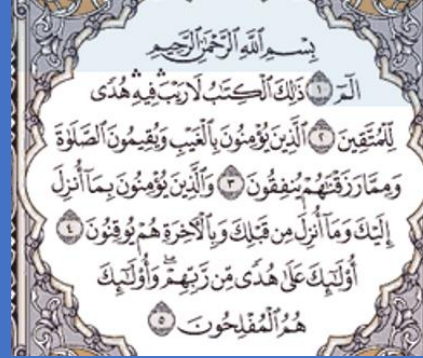 بِسْمِ ٱللَّهِ ٱلرَّحْمَٰنِ ٱلرَّحِيمِ
الٓمٓ ١ ذَٰلِكَ ٱلْكِتَٰبُ لَا رَيْبَۛ فِيهِۛ هُدًى
لِّلْمُتَّقِينَ ٢ ٱلَّذِينَ يُؤْمِنُونَ بِٱلْغَيْبِ وَيُقِيمُونَ ٱلصَّلَوٰةَ
وَمِمَّا رَزَقْنَٰهُمْ يُنفِقُونَ ٣ وَٱلَّذِينَ يُؤْمِنُونَ بِمَآ أُنزِلَ
إِلَيْكَ وَمَآ أُنزِلَ مِن قَبْلِكَ وَبِٱلْءَاخِرَةِ هُمْ يُوقِنُونَ ٤
أُو۟لَٰٓئِكَ عَلَىٰ هُدًى مِّن رَّبِّهِمْ ۖ وَأُو۟لَٰٓئِكَ
هُمُ ٱلْمُفْلِحُونَ ٥